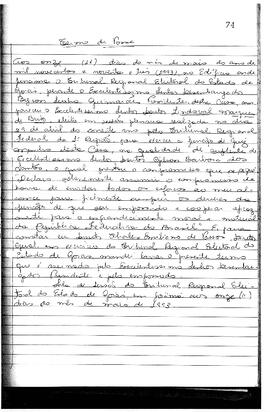 74
Termo de Posse
Aos onze (11) dias do mês de maio do ano de
mil novecentos e noventa e três (1993), no Edifício onde
funciona o Tribunal Regional Eleitoral do Estado de
Goiás, perante o Excelentíssimo Senhor Desembargador
Senhor Presidente desta Casa, com
pareceu o Excelentíssimo Senhor Doutor Lindoval Marques
de Brito, eleito em sessão plenária realizada no dia
de abril do corrente ano pelo Tribunal Regional
Federal da 1ª Região para exercer a função de Juiz
desta Casa, na qualidade de
Excelentíssimo Senhor Doutor
Santos, o qual prestou o compromisso que se segue:
"Declaro assumir o compromisso de
honra de envidar todos os esforços ao meu al
cance para fielmente cumprir os deveres da
função de que sou empossado e cooperar eficaz
mente para o engrandecimento moral e material
da República Federativa do Brasil". E, para
constar eu,
Geral em exercício do Tribunal Regional Eleitoral do
Estado de Goiás, mandei lavrar o presente termo
que é assinado pelo Excelentíssimo Senhor Desembar
gador Presidente e pelo empossado.
Sala de Sessões do Tribunal Regional Elei
toral do Estado de Goiás, em Goiânia aos onze (11)
dias do mês de maio de 1993.